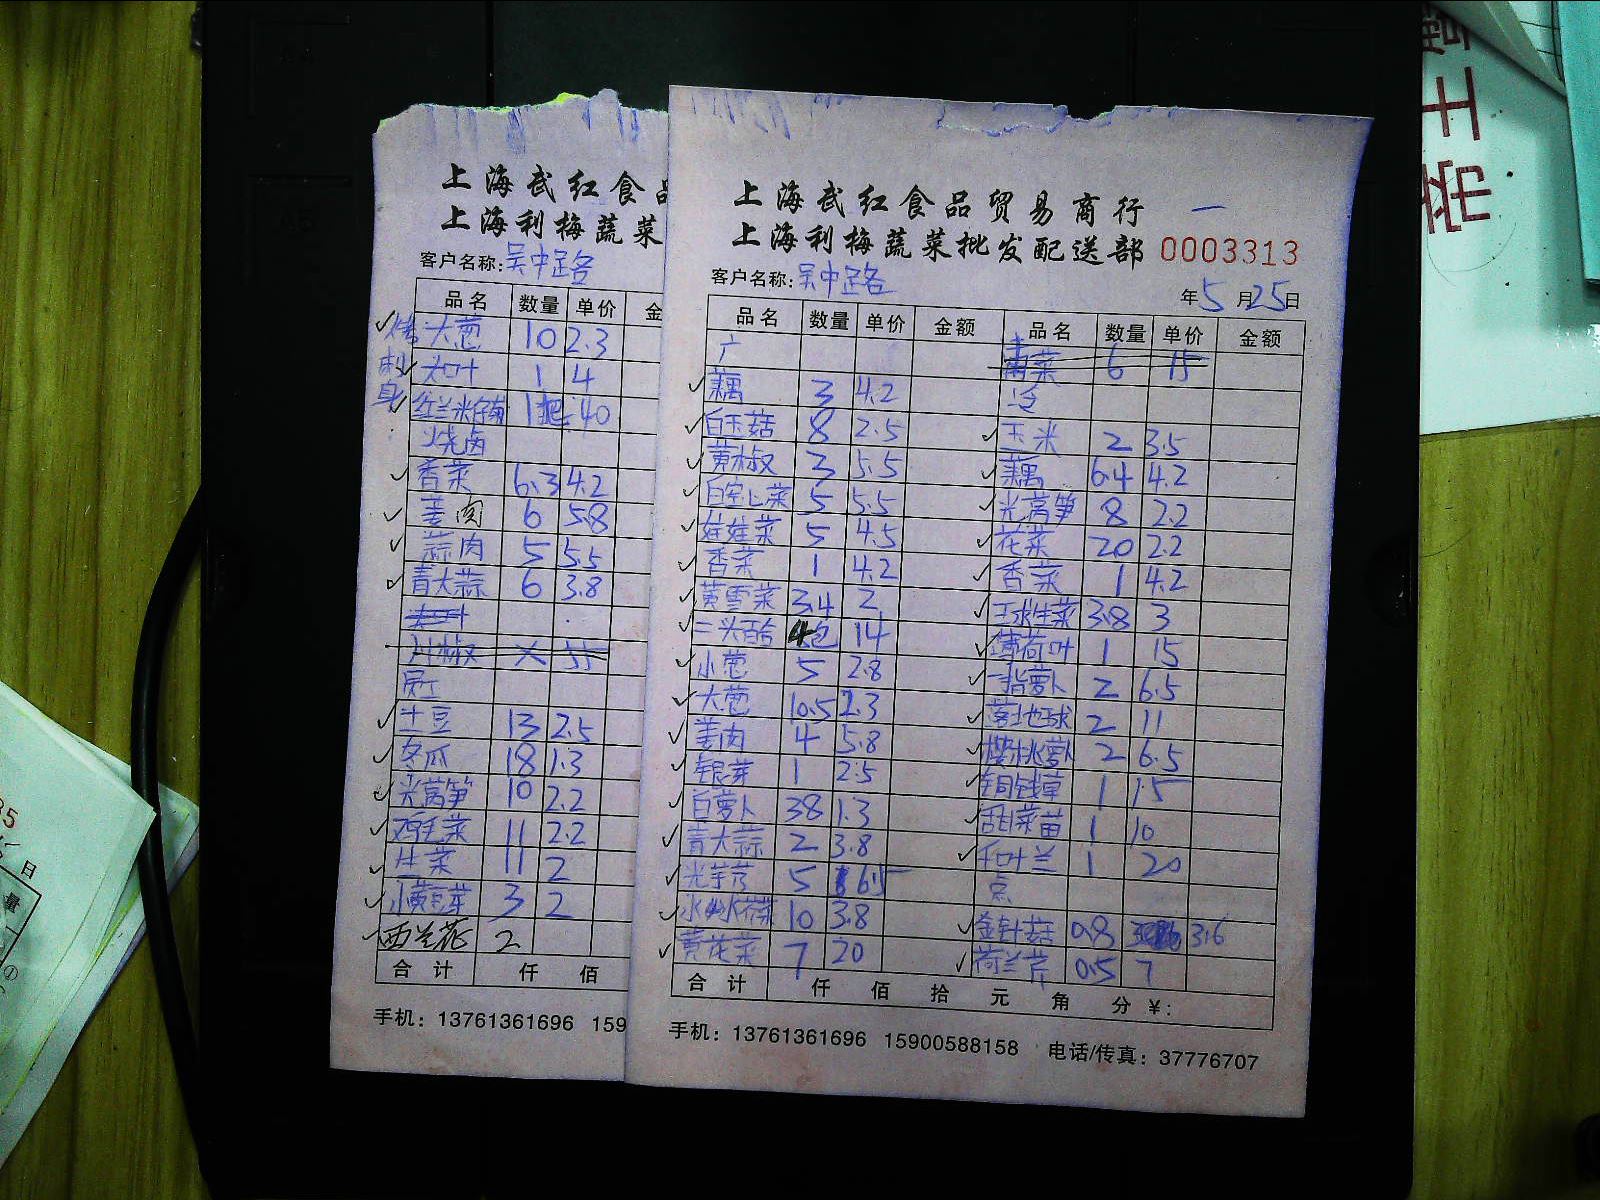 上海武红食品
上海利梅蔬菜
客户名称:吴中路
品名 数量 单价 金
烤
刺身
大葱 10 2.3
1 4
1把 40
烧卤
香菜 6.3 4.2
姜肉 6 5.8
蒜肉 5 5.5
青大蒜 6 3.8
川椒
土豆 13 2.5
冬瓜 18 1.3
光莴笋 10 2.2
鸡毛菜 11 2.2
生菜 11 2
小黄豆芽 3 2
西兰花 2
合计 仟 佰
手机：13761361696 159
上海武红食品贸易商行
上海利梅蔬菜批发配送部 0003313
客户名称:吴中路 年5月25日
品名 数量 单价 金额 品名 数量 单价 金额
广 6 15
藕 3 4.2 冷
白玉菇 8 2.5 玉米 2 3.5
黄椒 3 5.5 藕 6.4 4.2
5 5.5 光莴笋 8 2.2
娃娃菜 5 4.5 花菜 20 2.2
香菜 1 4.2 香菜 1 4.2
黄雪菜 3.4 2 球生菜 3.8 3
三头百合 4包 14 薄荷叶 1 15
小葱 5 2.8 指萝卜 2 6.5
大葱 10.5 2.3 落地球 2 11
姜肉 4 5.8 樱桃萝卜 2 6.5
银芽 1 2.5 铜钱草 1 15
白萝卜 38 1.3 甜菜苗 1 10
青大蒜 2 3.8 叶兰 1 20
光芋艿 5 6.5 点
10 3.8 金针菇 0.8 3.6
黄花菜 7 20 荷兰芹 0.5 7
合计 仟 佰 拾 元 角 分 ￥:
手机：13761361696 15900588158 电话/传真：37776707